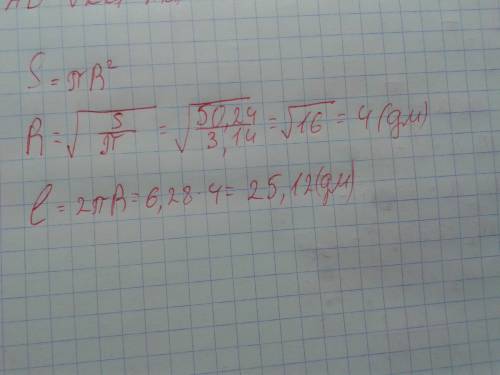 S = πR²
R = √(S/π) = √(50,24/3,14) = √16 = 4 (дм)
ℓ = 2πR = 6,28 · 4 = 25,12 (дм)